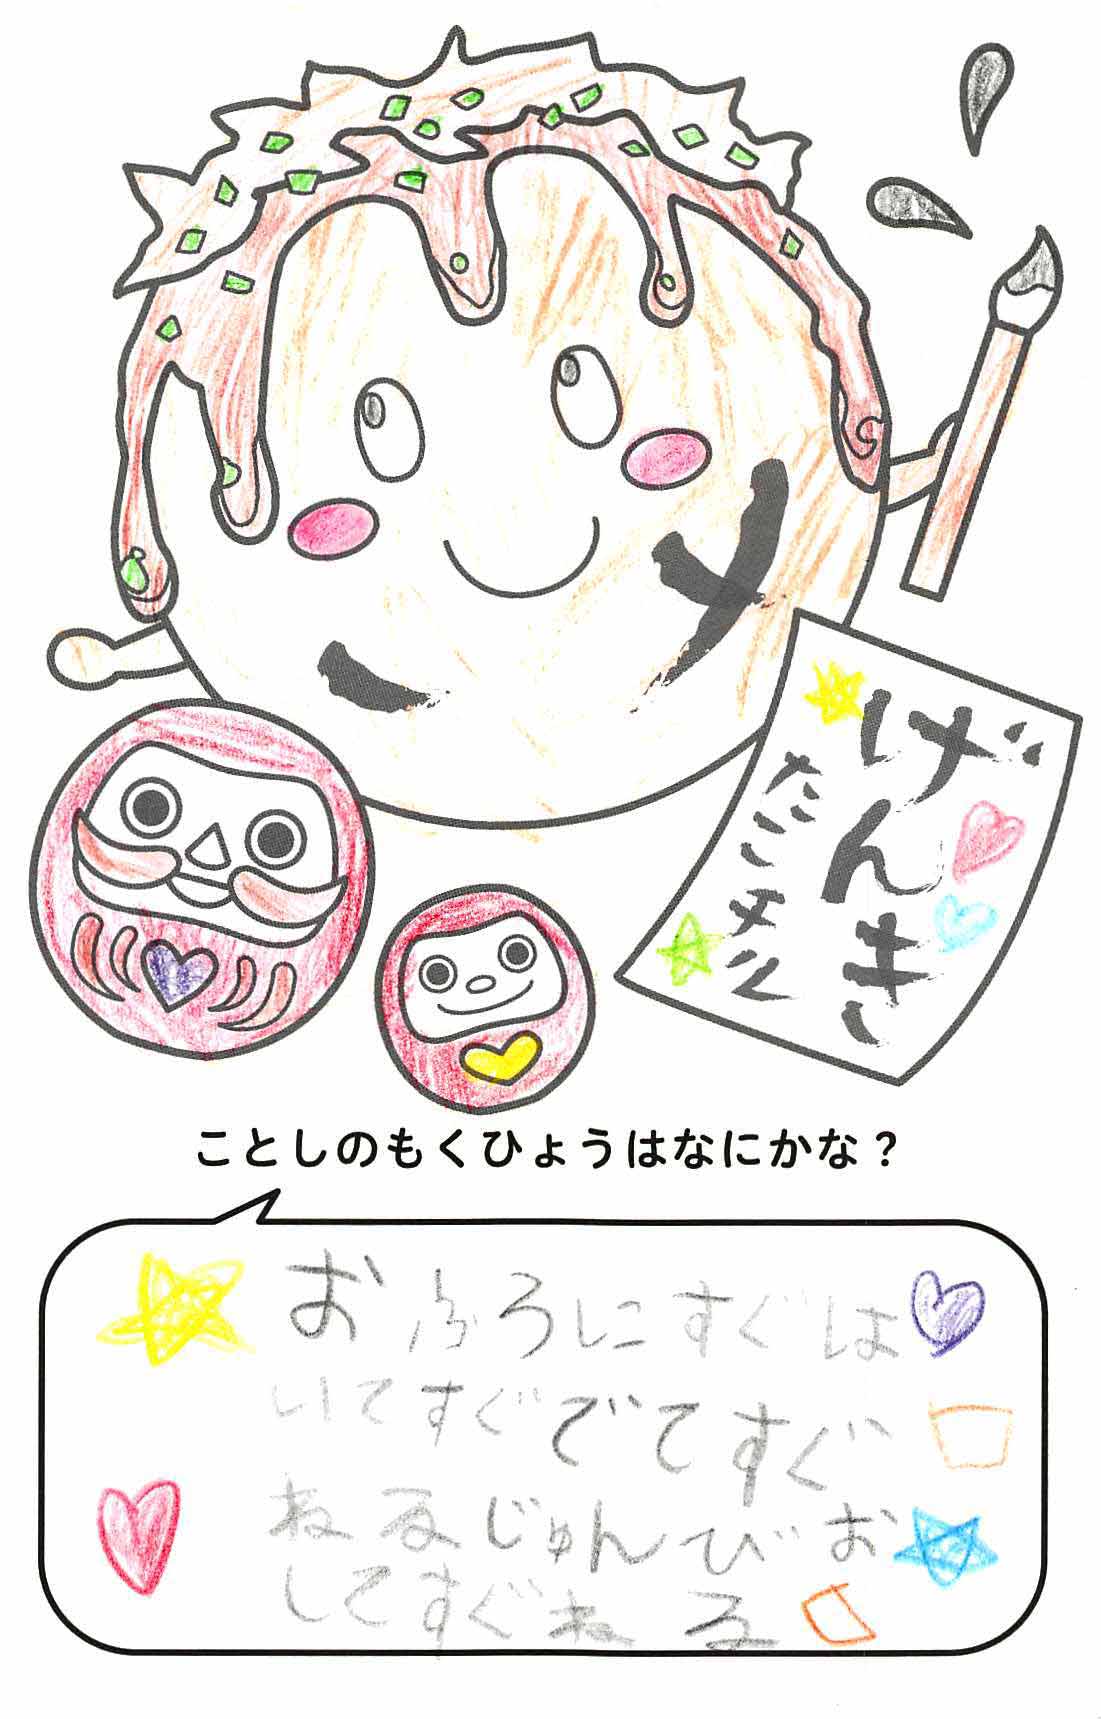 げんき
たこメル
ことしのもくひょうはなにかな？
おふろにすぐは
いてすぐでてすぐ
ねるじゅんびお
してすぐねる